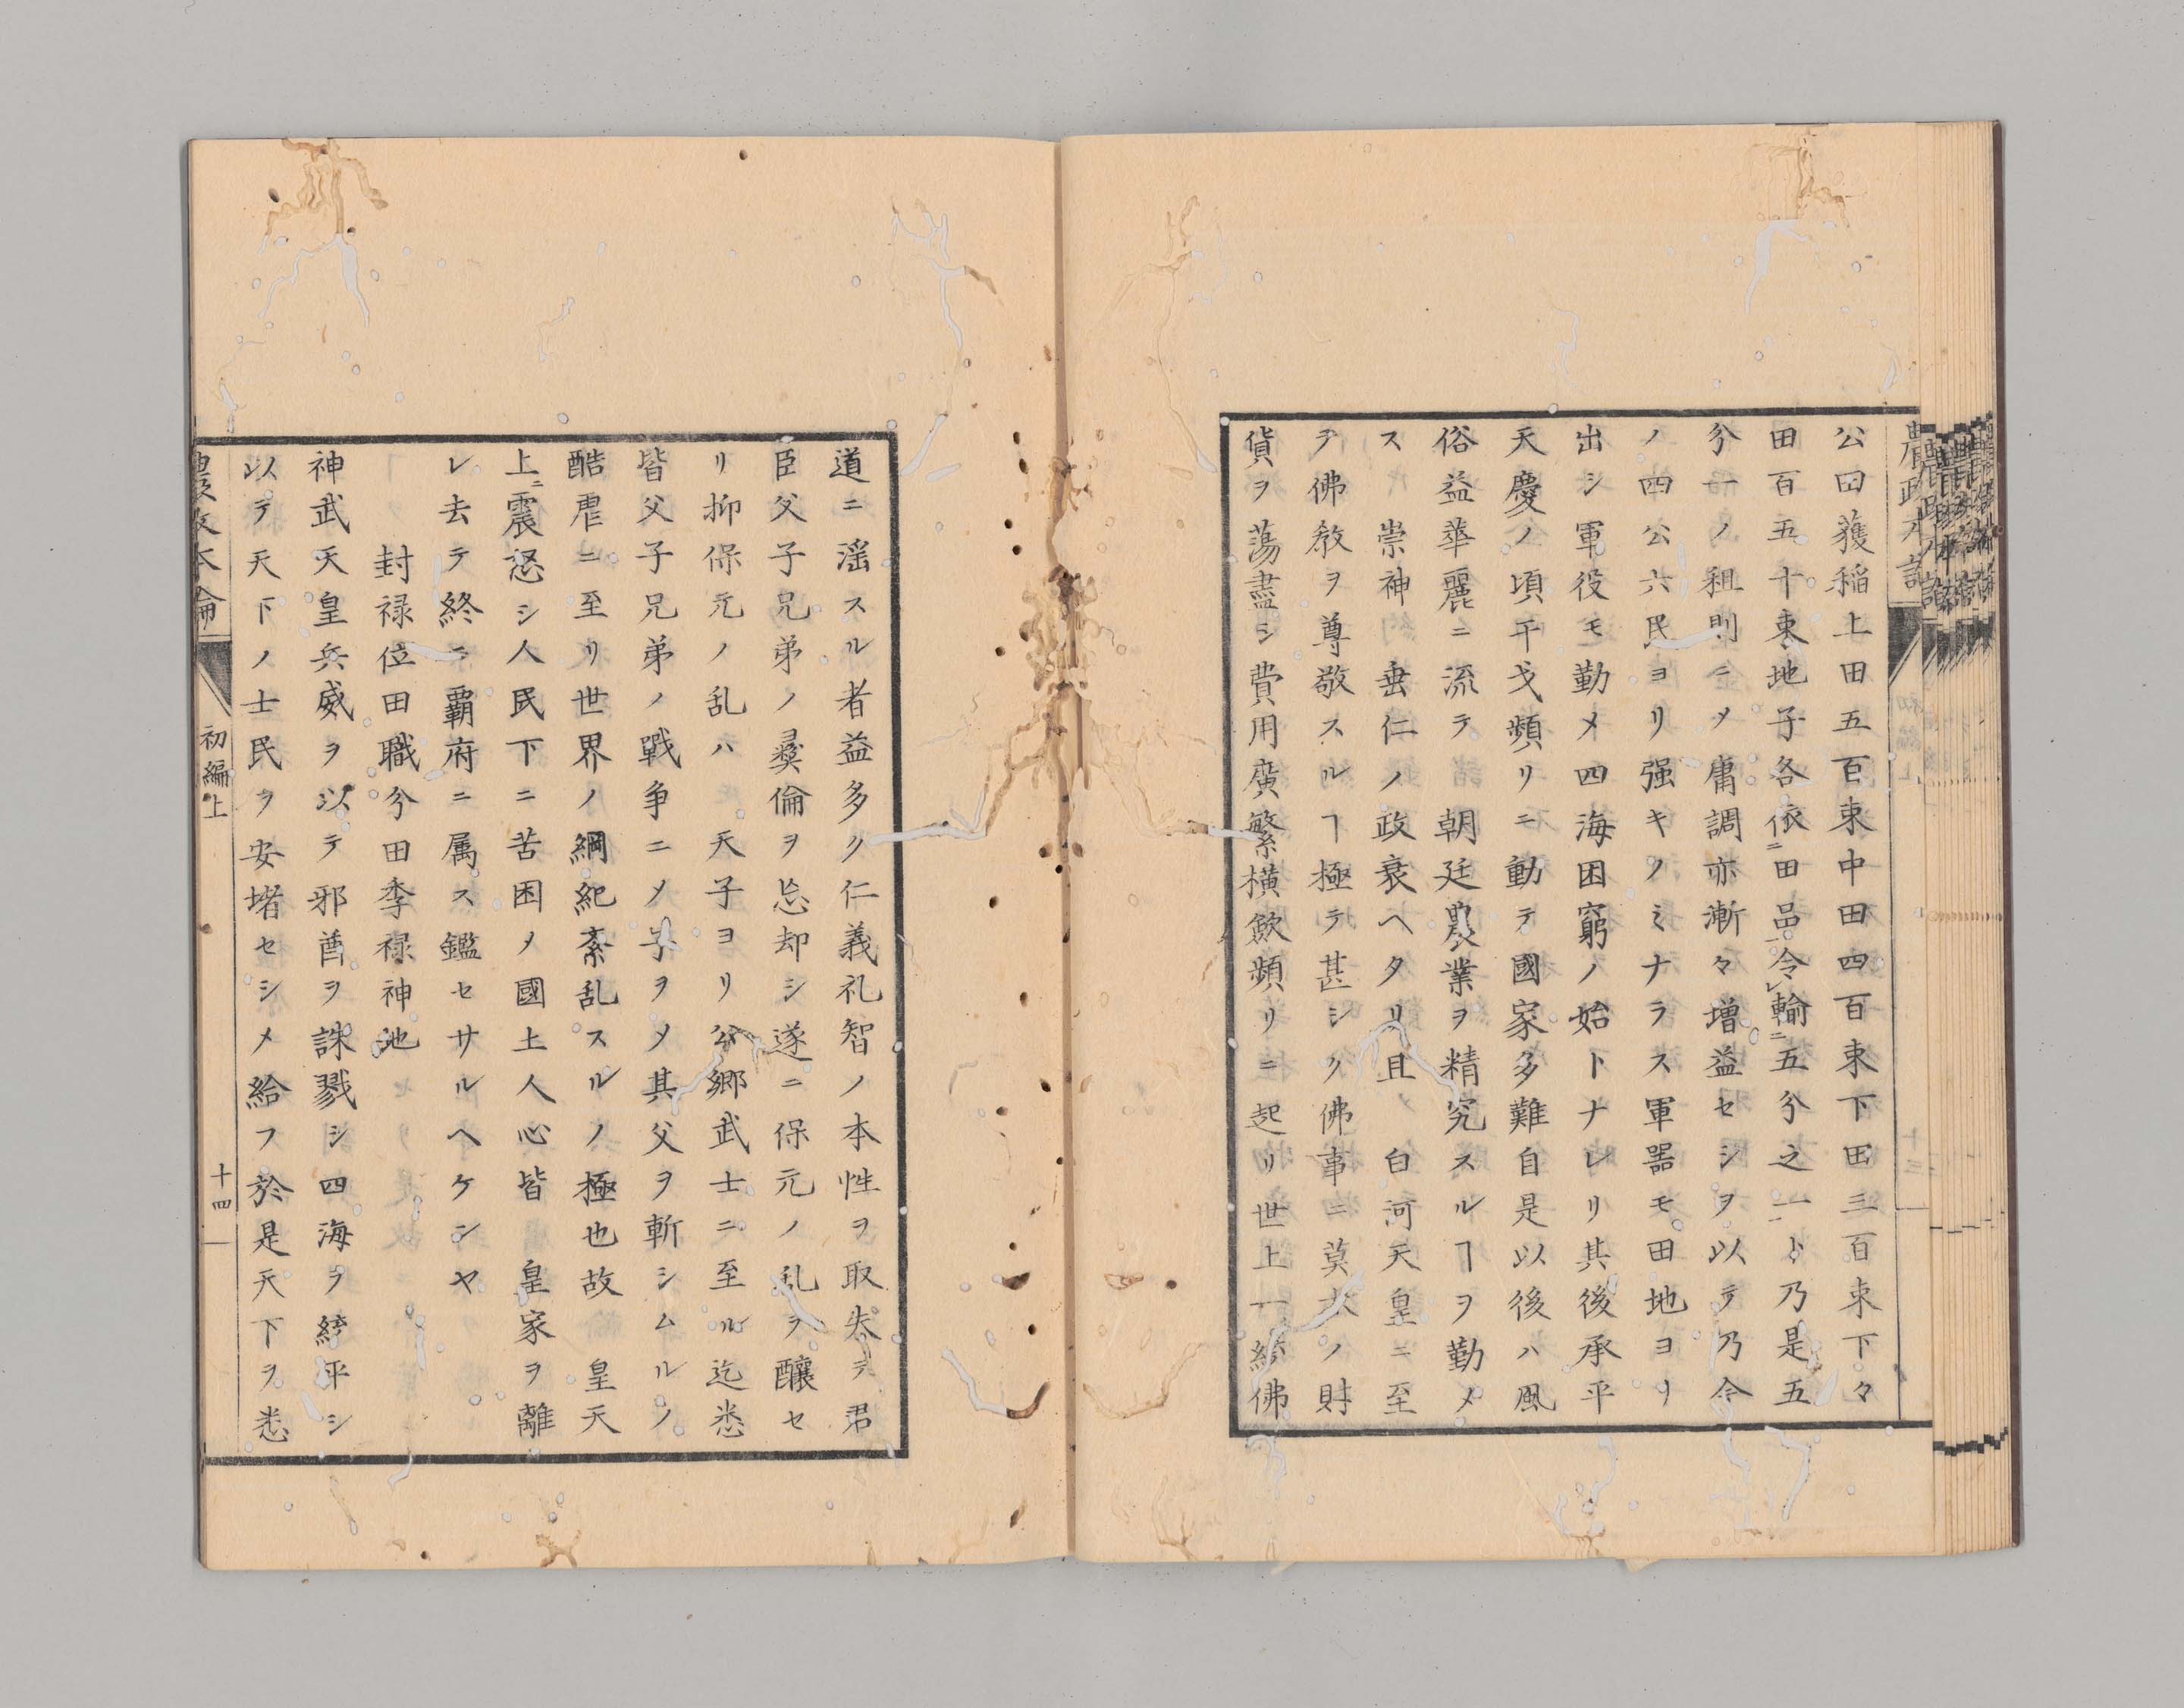 公田獲稲上田五百束中田四百束下田三百束下々
田百五十束地子各依ニ田品一令レ輸ニ五分之一ト乃是五
分一ノ租則ニメ庸調亦漸々増益セシヲ以テ乃今
ノ四公六民ヨリ强キノミナラス軍器モ田地ヨリ
出シ軍役モ勤メ四海困窮ノ始トナレリ其後承平
天慶ノ頃干戈頻リニ動テ國家多難自是以後ハ風
俗益華麗ニ流テ諸朝廷農業ヲ精究スルヿヲ勤メ
ス崇神垂仁ノ政衰ヘタリ且白河天皇ニ至
テ佛教ヲ尊敬スルヿ極テ甚シク佛事ニ莫大ノ財
貨ヲ蕩盡シ費用廣繁横斂頻リニ起リ世上一統佛
道ニ滛スル者益多ク仁義礼智ノ本性ヲ取失テ君
臣父子兄弟ノ彛倫ヲ忘却シ遂ニ保元ノ乱ヲ釀セ
リ抑保元ノ乱ハ天子ヨリ公郷武士ニ至ル迄悉
皆父子兄弟ノ戰争ニメ子ヲメ其父ヲ斬シムルノ
酷虐ニ至リ世界ノ綱紀紊乱スルノ極也故皇天
上ニ震怒シ人民下ニ苦困メ國土人心皆皇家ヲ離
レ去テ終ニ覇府ニ属ス鑑セサルヘケンヤ
封禄位田職分田季禄神地
神武天皇兵威ヲ以テ邪酋ヲ誅戮シ四海ヲ統平シ
以テ天下ノ士民ヲ安堵セシメ給フ於是天下ヲ悉
農政本論
初編上
十四